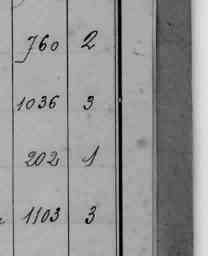 760 2
1036 3
202 1
1103 3